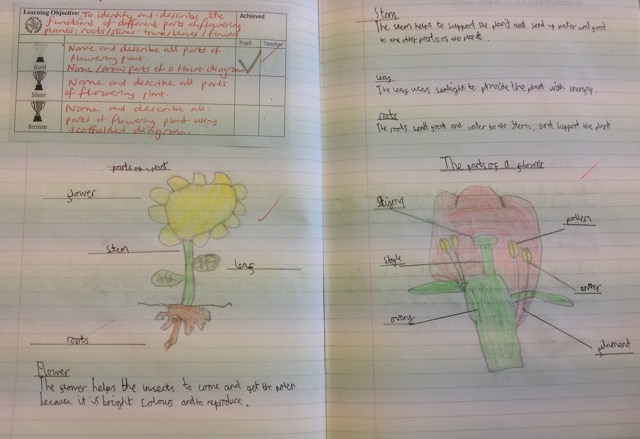 Learning Objective: To identify and describe the
functions of different parts of flowering
plants: roots/stems/trunk/leaves/flowers
Achieved
Pupil
Teacher
Gold
Name and describe all parts of
flowering plant.
Name/draw parts of a flower diagram
Silver
Name and describe all parts
of flowering plant.
Bronze
Name and describe all
parts of flowering plant using
scaffolded diagram.
parts of a plant
flower
stem
leaf
roots
Flower
The flower helps the insects to come and get the polen
because it is bright colours and to reproduce.
Stem
The stem helps to support the plant and send up water and food
to the other parts of the plant.
Leaf
The leaf uses sunlight to provide the plant with energy.
roots
The roots send food and water to the stem, and support the plant
The parts of a flower
Stigma
pollen
style
anther
ovary
filament